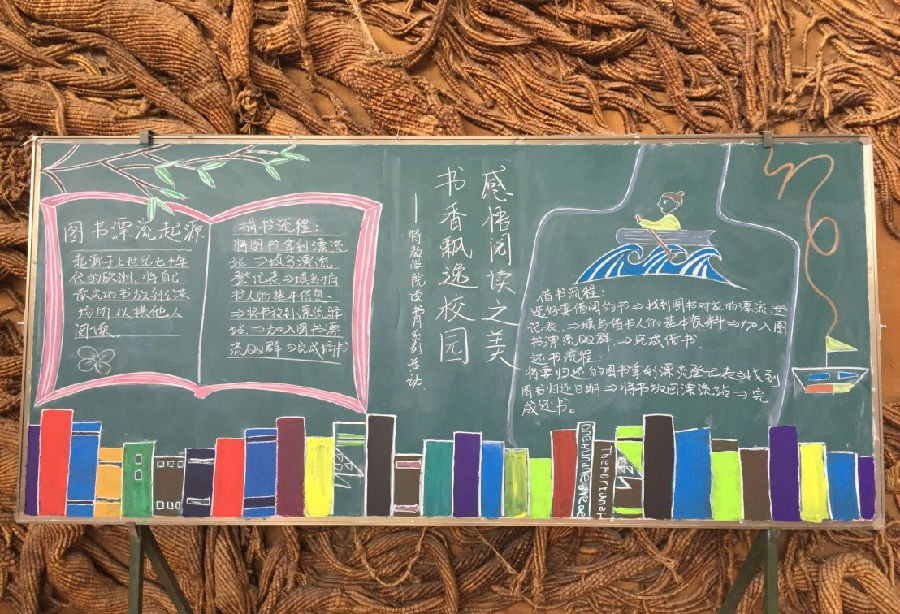 图书漂流起源
起源于上世纪七十年
代的欧洲,将自己
的书放到公共
场所以供他人
阅读
捐书流程:
将图书拿到漂流
站⇒填写漂流
登记表⇒填写捐
书人的基本信息
⇒将书放到漂流驿
站⇒加入图书漂
流QQ群⇒完成捐书
感悟阅读之美
书香飘逸校园
—特教学院读书月系列活动
借书流程:
选好要借阅的书⇒找到图书对应的漂流登
记表⇒填写借书人的基本资料⇒加入图
书漂流QQ群⇒完成借书
还书流程
将要归还的图书拿到漂流登记表⇒找到
图书归还日期⇒将书放回漂流站⇒完
成还书。